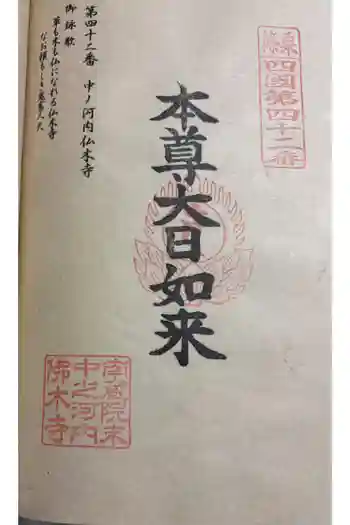 四國第四十二番
本尊大日如来
第四十二番 中ノ河内仏木寺
御詠歌
草も木も仏になれる仏木寺
なお頼もしき鬼畜人天
中之河内
佛木寺